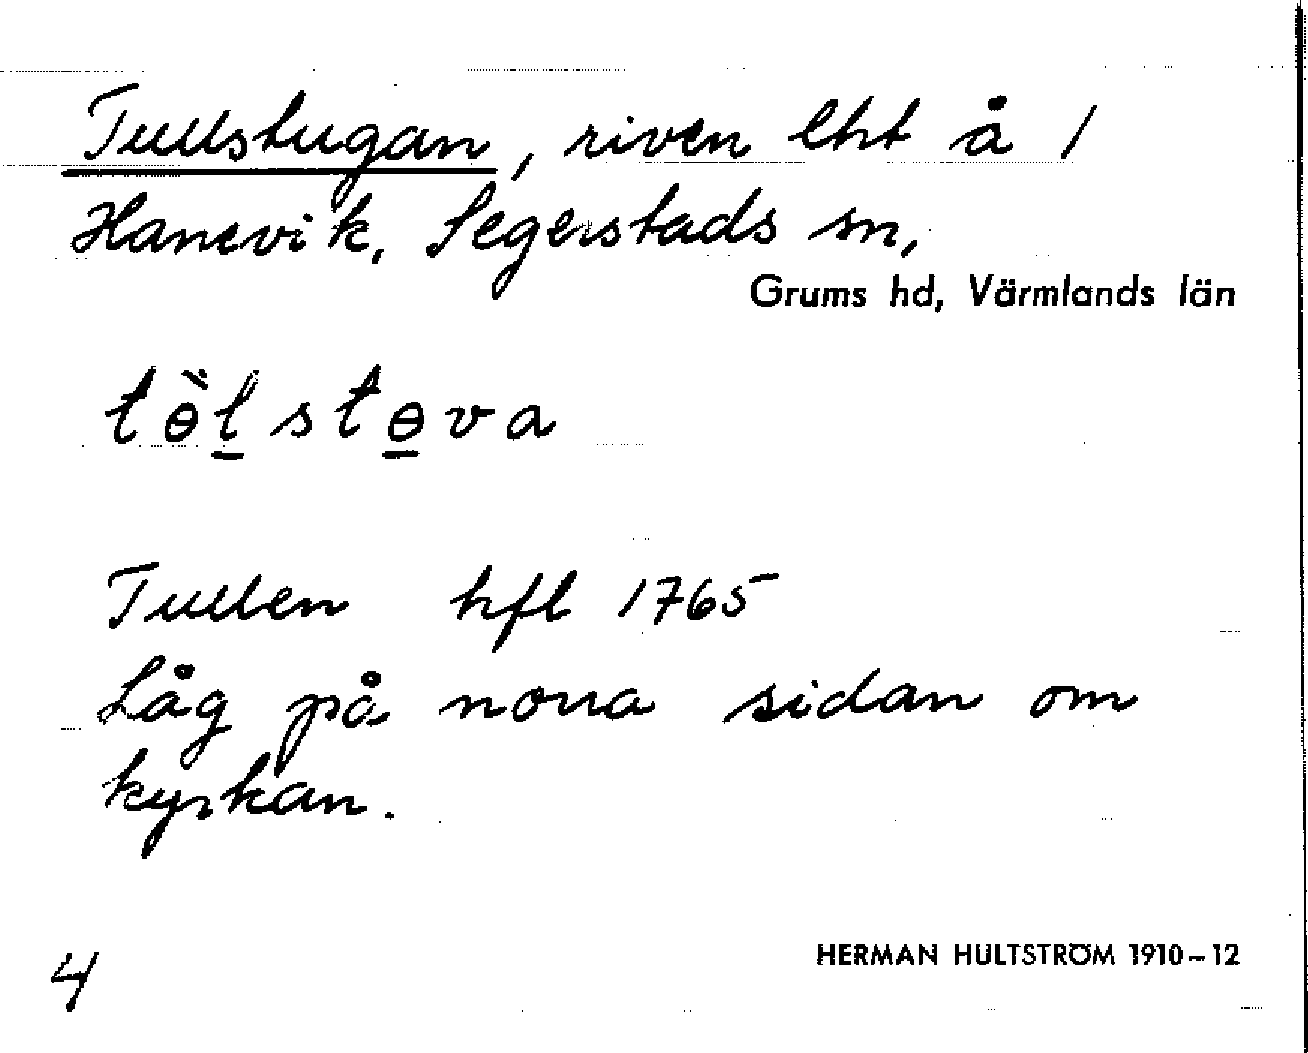 Tullstugan, riven lht å /
Hanevik, Segerstads sn,
Grums hd, Värmlands län
tɵ̏l̲stɵ̲va
Tullen hfl 1765
Låg på norra sidan om
kyrkan.
4
HERMAN HULTSTRÖM 1910–12